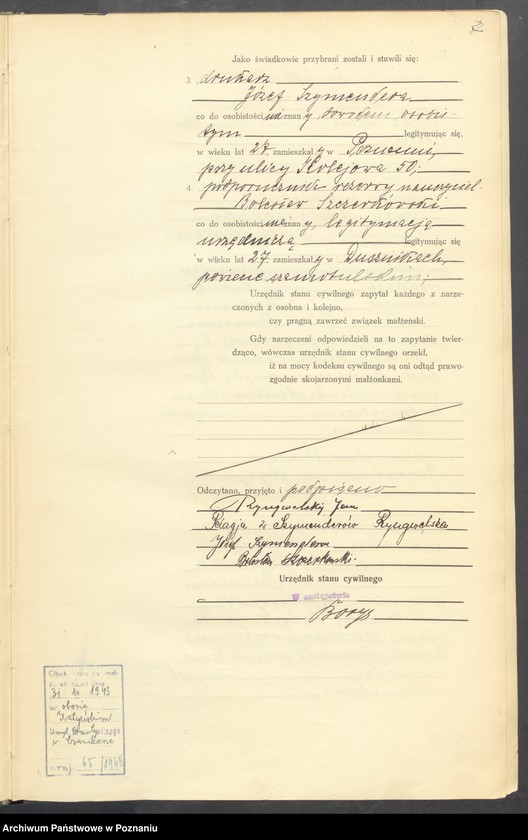 2
Jako świadkowie przybrani zostali i stawili się:
3. drukarz
Józef Szymendera
co do osobistości, nie znany dowodem osobis-
tym legitymując się,
w wieku lat 27 zamieszkały w Poznaniu,
przy ulicy Kolejowa 50;
4. podporucznik rezerwy nauczyciel
Bolesław Szczerkowski
co do osobistości, nie znany, legitymacją
urzędniczą legitymując się
w wieku lat 27 zamieszkały w Dusznikach,
powiecie szamotulskim;
Urzędnik stanu cywilnego zapytał każdego z narze-
czonych z osobna i kolejno,
czy pragną zawrzeć związek małżeński.
Gdy narzeczeni odpowiedzieli na to zapytanie twier-
dząco, wówczas urzędnik stanu cywilnego orzekł,
iż na mocy kodeksu cywilnego są oni odtąd prawo-
zgodnie skojarzonymi małżonkami.
Odczytano, przyjęto i podpisano
Jan
z Szymenderów Ryngwelska
Józef Szymendera
Bolesław Szczerkowski.
Urzędnik stanu cywilnego
W zastępstwie
Borys
31. 1943
w obozie
Katyńskim
w Czarnkowie
65/1948
Archiwum Państwowe w Poznaniu